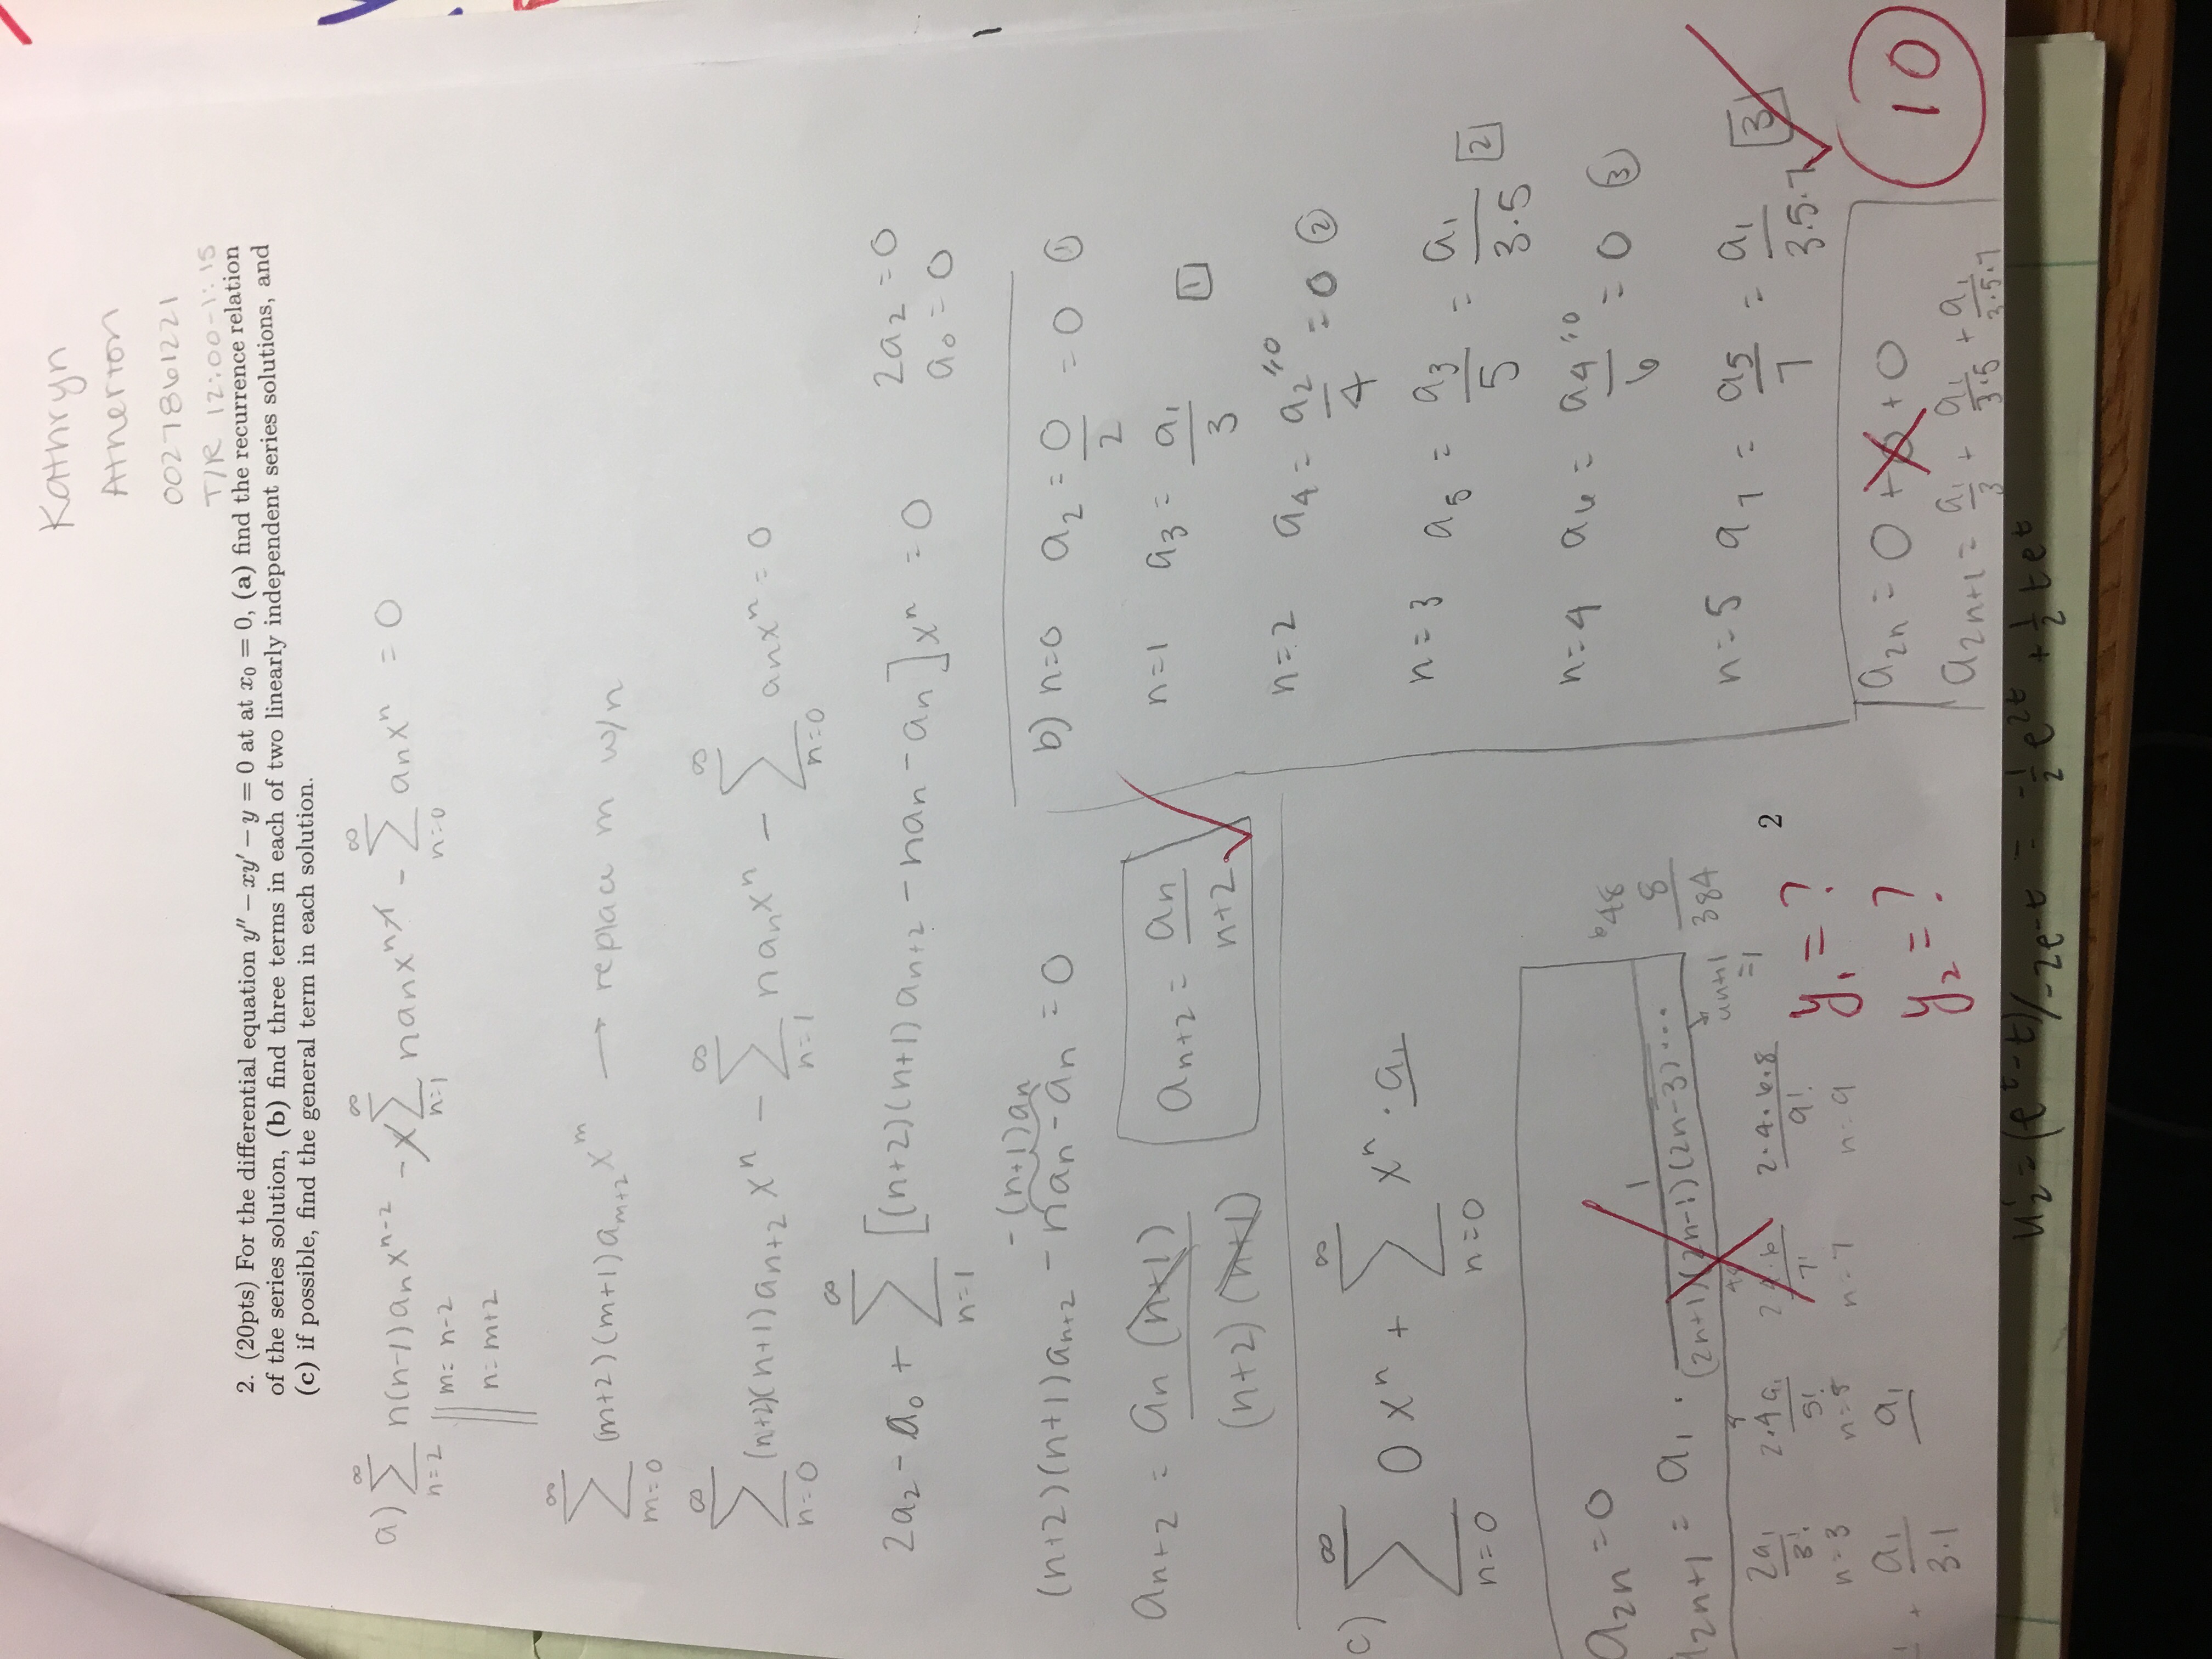 Kathryn
Atherton
0027861221
T/R 12:00-1:15
2. (20pts) For the differential equation y″ − xy′ − y = 0 at at x₀ = 0, (a) find the recurrence relation
of the series solution, (b) find three terms in each of two linearly independent series solutions, and
(c) if possible, find the general term in each solution.
a) ∞∑n=2 n(n-1)aₙxⁿ⁻² - x ∞∑n=1 naₙxⁿ⁻¹ - ∞∑n=0 aₙxⁿ = 0
m = n-2
n = m+2
∞∑m=0 (m+2)(m+1)aₘ₊₂xᵐ → replace m w/n
∞∑n=0 (n+2)(n+1)aₙ₊₂xⁿ - ∞∑n=1 naₙxⁿ - ∞∑n=0 aₙxⁿ = 0
2a₂ - a₀ + ∞∑n=1 [(n+2)(n+1)aₙ₊₂ - naₙ - aₙ]xⁿ = 0
2a₂ = 0
a₀ = 0
-(n+1)aₙ
(n+2)(n+1)aₙ₊₂ - naₙ - aₙ = 0
aₙ₊₂ = aₙ(n+1) / (n+2)(n+1)
aₙ₊₂ = aₙ / n+2
b) n=0 a₂ = 0/2 = 0 ①
n=1 a₃ = a₁/3 [1]
n=2 a₄ = a₂/4 = 0 ②
=0
n=3 a₅ = a₃/5 = a₁/3·5 [2]
n=4 a₆ = a₄/6 = 0 ③
=0
n=5 a₇ = a₅/7 = a₁/3·5·7 [3]
a₂ₙ = 0 + 0 + 0
a₂ₙ₊₁ = a₁/3 + a₁/3·5 + a₁/3·5·7
10
c) ∞∑n=0 0xⁿ + ∞∑n=0 xⁿ · a₁
a₂ₙ = 0
a₂ₙ₊₁ = a₁ · 1 / (2n+1)(2n-1)(2n-3)...
until
=1
⁶48
8
384
2a₁/3! 2·4a₁/5! 2·4·6/7! 2·4·6·8/9!
n=3 n=5 n=7 n=9
+ a₁/3·1 a₁
y₁ = ?
y₂ = ?
2
u₂' = (eᵗ-t)/-2e-t = -½e²ᵗ + ½teᵗ